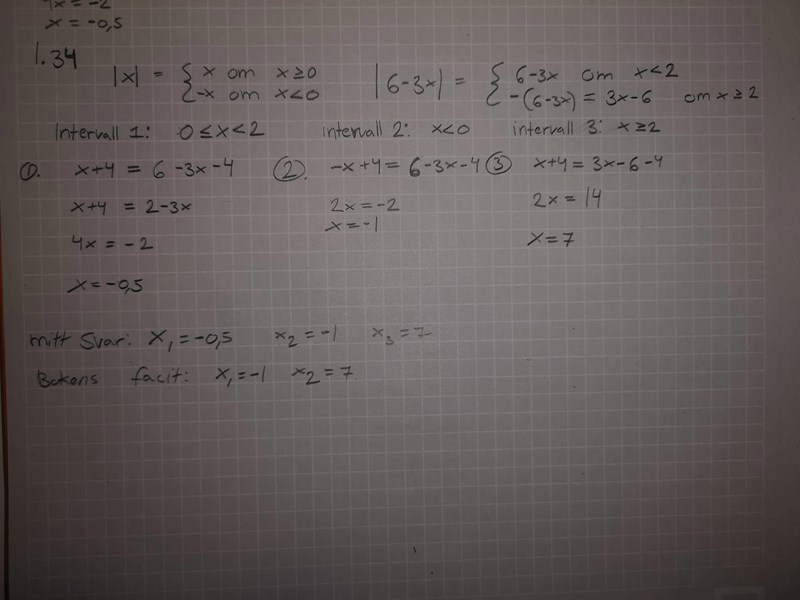 4x = -2
x = -0,5
1.34
|x| = { x om x ≥ 0
-x om x < 0
|6-3x| = { 6-3x om x < 2
-(6-3x) = 3x-6 om x ≥ 2
Intervall 1: 0 ≤ x < 2
intervall 2: x < 0
intervall 3: x ≥ 2
①. x+4 = 6-3x-4
x+4 = 2-3x
4x = -2
x = -0,5
②. -x+4 = 6-3x-4
2x = -2
x = -1
③ x+4 = 3x-6-4
2x = 14
x = 7
mitt Svar: x₁ = -0,5 x₂ = -1 x₃ = 7
Bokens facit: x₁ = -1 x₂ = 7